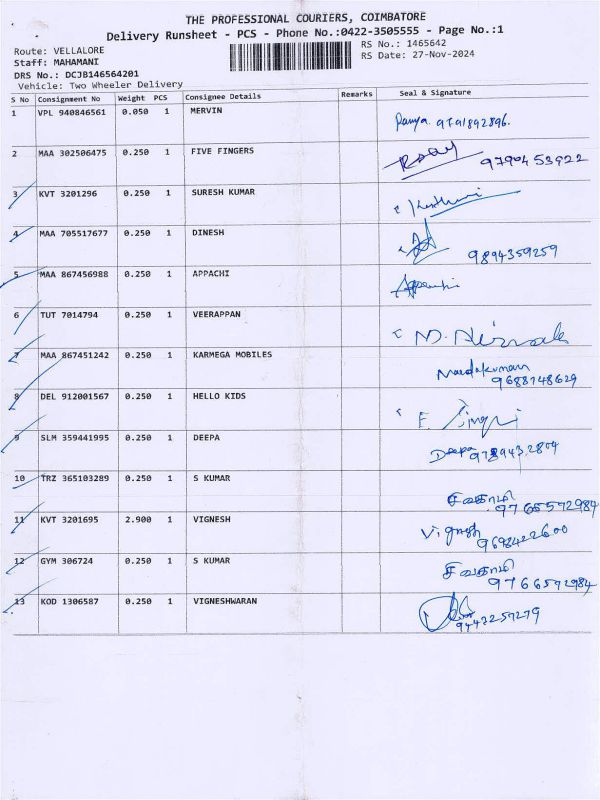 THE PROFESSIONAL COURIERS, COIMBATORE
Delivery Runsheet - PCS - Phone No.:0422-3505555 - Page No.:1
Route: VELLALORE
RS No.: 1465642
Staff: MAHAMANI
RS Date: 27-Nov-2024
DRS No.: DCJB146564201
Vehicle: Two Wheeler Delivery
S No Consignment No Weight PCS Consignee Details Remarks Seal & Signature
1 VPL 940846561 0.050 1 MERVIN Ramya. 9791892896.
2 MAA 302506475 0.250 1 FIVE FINGERS 9790453922
3 KVT 3201296 0.250 1 SURESH KUMAR
4 MAA 705517677 0.250 1 DINESH 9894359259
5 MAA 867456988 0.250 1 APPACHI
6 TUT 7014794 0.250 1 VEERAPPAN
7 MAA 867451242 0.250 1 KARMEGA MOBILES Nandakumar
9688748629
8 DEL 912001567 0.250 1 HELLO KIDS
9 SLM 359441995 0.250 1 DEEPA Deepa 9789432804
10 TRZ 365103289 0.250 1 S KUMAR சிவகாமி
9766592984
11 KVT 3201695 2.900 1 VIGNESH Vignesh
9698422600
12 GYM 306724 0.250 1 S KUMAR சிவகாமி
9766592984
13 KOD 1306587 0.250 1 VIGNESHWARAN
9442257279